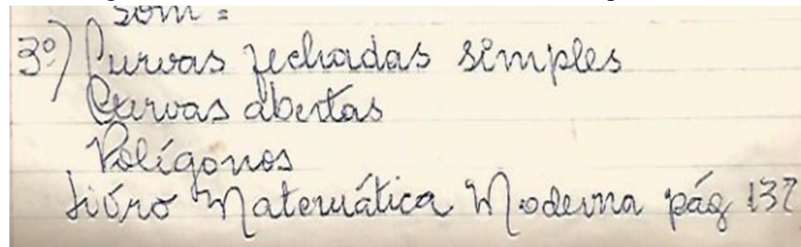 som =
3º) Curvas fechadas simples
Curvas abertas
Polígonos
Livro Matemática Moderna pág 137